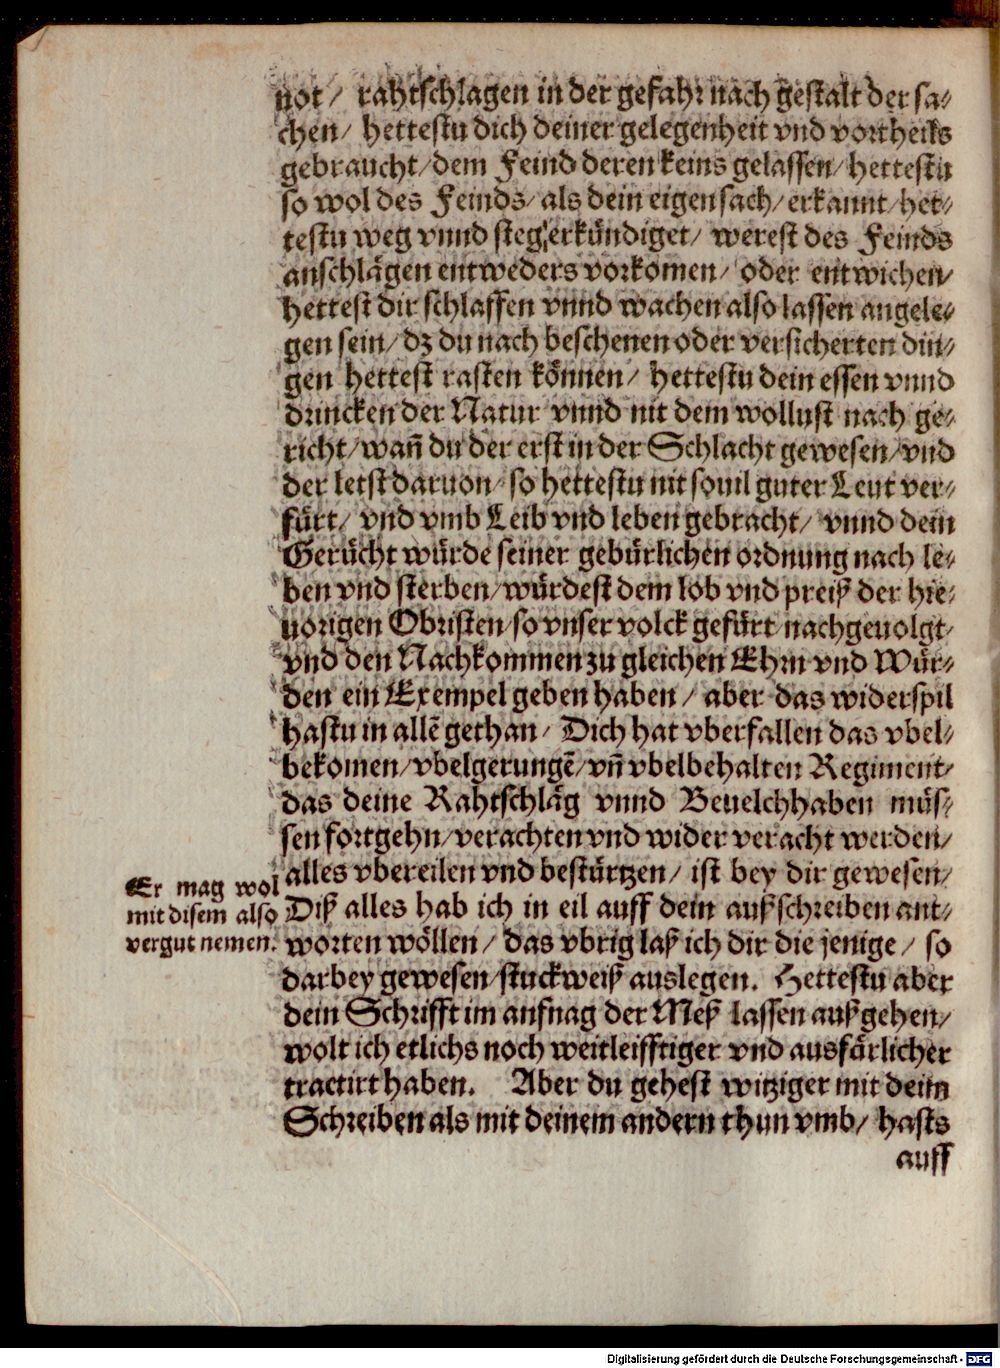 not / rahtschlagen in der gefahr nach gestalt der sa-
chen / hettestu dich deiner gelegenheit vnd vortheils
gebraucht / dem Feind deren keins gelassen / hettestu
so wol des Feinds / als dein eigen sach / erkannt / het-
testu weg vnnd steg erkündiget / werest des Feinds
anschlägen entweders vorkomen / oder entwichen /
hettest dir schlaffen vnnd wachen also lassen angele-
gen sein / dz du nach beschenen oder versicherten din-
gen hettest rasten können / hettestu dein essen vnnd
drincken der Natur vnnd nit dem wollust nach ge-
richt / wañ du der erst in der Schlacht gewesen / vnd
der letst daruon / so hettestu nit souil guter Leut ver-
fürt / vnd vmb Leib vnd leben gebracht / vnnd dein
Gerücht würde seiner gebürlichen ordnung nach le-
ben vnd sterben / würdest dem lob vnd preiß der hie-
uorigen Obristen / so vnser volck gefürt / nachgeuolgt /
vnd den Nachkommen zu gleichen Ehrn vnd Wür-
den ein Exempel geben haben / aber das widerspil
hastu in allē gethan / Dich hat vberfallen das vbel-
bekomen / vbelgerungē / vñ vbelbehalten Regiment /
das deine Rahtschläg vnnd Beuelchhaben müs-
sen fortgehn / verachten vnd wider veracht werden /
alles vbereilen vnd bestürtzen / ist bey dir gewesen /
Diß alles hab ich in eil auff dein außschreiben ant-
worten wöllen / das vbrig laß ich dir die jenige / so
darbey gewesen / stuckweiß auslegen. Hettestu aber
dein Schrifft im anfnag der Meß lassen außgehen /
wolt ich etlichs noch weitleifftiger vnd ausfärlicher
tractirt haben. Aber du gehest witziger mit deim
Schreiben als mit deinem andern thun vmb / hasts
auff
Er mag wol
mit disem also
vergut nemen.
Digitalisierung gefördert durch die Deutsche Forschungsgemeinschaft - DFG